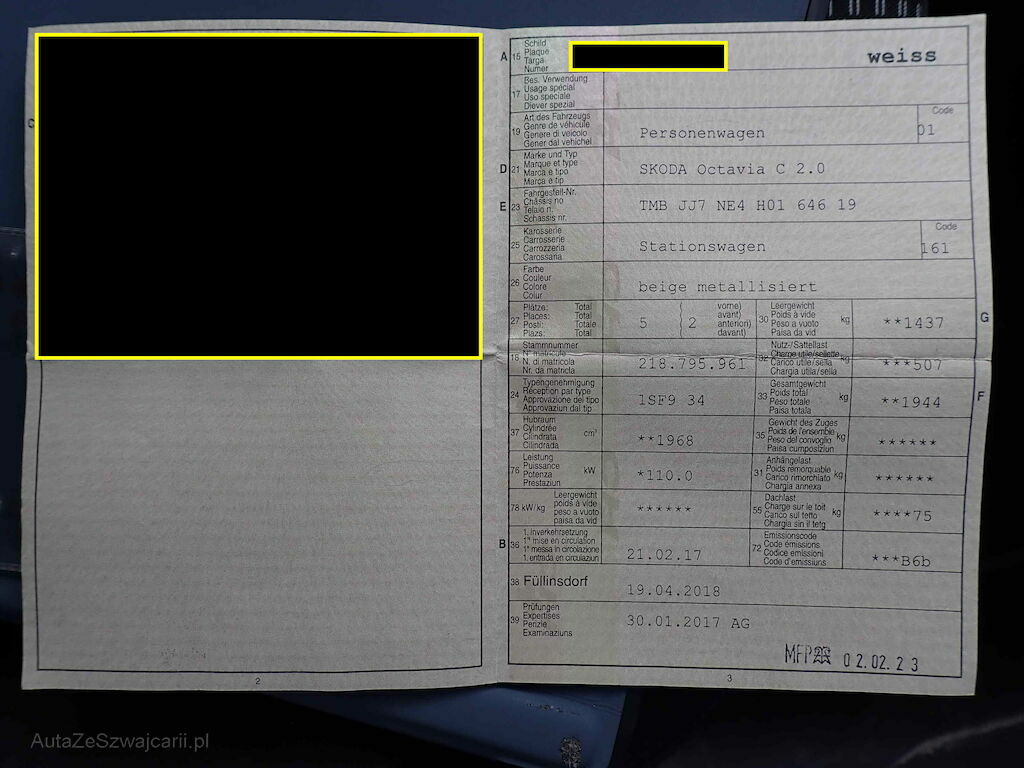 C
A 15 Schild
Plaque
Targa
Numer
weiss
17 Bes. Verwendung
Usage spécial
Uso speciale
Diever spezial
19 Art des Fahrzeugs
Genre de véhicule
Genere di veicolo
Gener dal vehichel
Personenwagen
Code
01
D 21 Marke und Typ
Marque et type
Marca e tipo
Marca e tip
SKODA Octavia C 2.0
E 23 Fahrgestell-Nr.
Châssis no
Telaio n.
Schassis nr.
TMB JJ7 NE4 H01 646 19
25 Karosserie
Carrosserie
Carrozzeria
Carossaria
Stationswagen
Code
161
26 Farbe
Couleur
Colore
Colur
beige metallisiert
27 Plätze: Total
Places: Total
Posti: Totale
Plazs: Total
5 ( 2 vorne)
avant)
anteriori)
davant)
30 Leergewicht
Poids à vide
Peso a vuoto
Paisa da vid
kg
**1437
G
18 Stammnummer
N° matricule
N. di matricola
Nr. da matricla
218.795.961
32 Nutz-/Sattellast
Charge utile/sellette
Carico utile/sella
Chargia utila/sella
kg
***507
24 Typengenehmigung
Réception par type
Approvazione del tipo
Approvaziun dal tip
1SF9 34
33 Gesamtgewicht
Poids total
Peso totale
Paisa totala
kg
**1944
F
37 Hubraum
Cylindrée
Cilindrata
Cilindrada
cm³
**1968
35 Gewicht des Zuges
Poids de l'ensemble
Peso del convoglio
Paisa cumposiziun
kg
******
76 Leistung
Puissance
Potenza
Prestaziun
kW
*110.0
31 Anhängelast
Poids remorquable
Carico rimorchiato
Chargia annexa
kg
******
78 kW/kg Leergewicht
poids à vide
peso a vuoto
paisa da vid
******
55 Dachlast
Charge sur le toit
Carico sul tetto
Chargia sin il tetg
kg
****75
B 36 1. Inverkehrsetzung
1re mise en circulation
1a messa in circolazione
1. entrada en circulaziun
21.02.17
72 Emissionscode
Code émissions
Codice emissioni
Code d'emissiuns
***B6b
38 Füllinsdorf
19.04.2018
39 Prüfungen
Expertises
Perizie
Examinaziuns
30.01.2017 AG
MFP 02.02.23
2
3
AutaZeSzwajcarii.pl